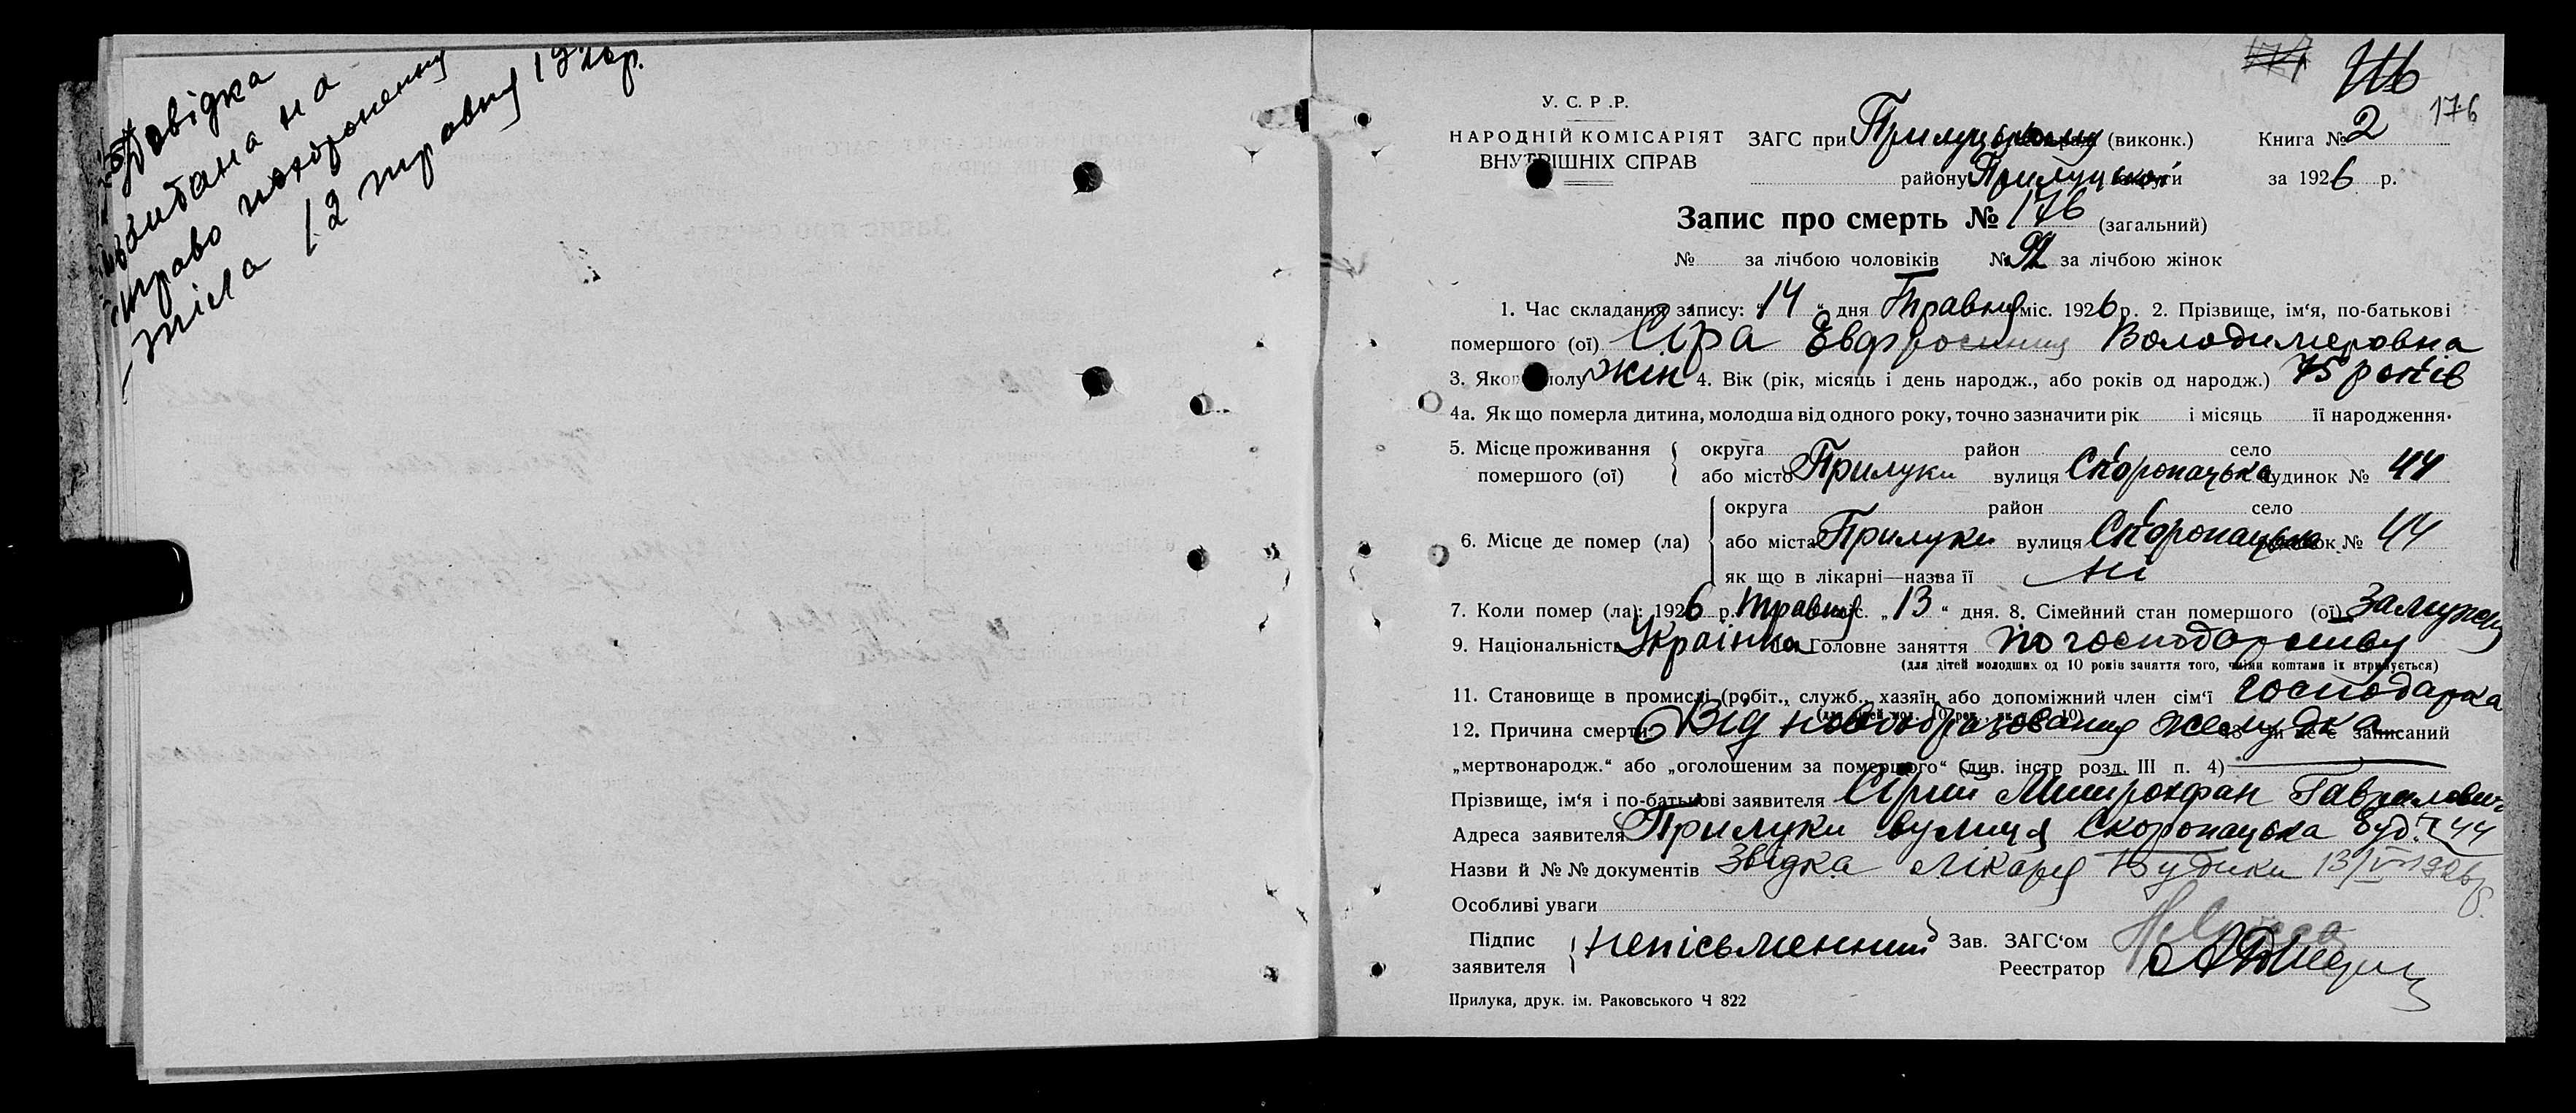 Довідка
видана на
право похоронення
тіла 12 травня 1926р.
176
У. С. Р. Р.
НАРОДНІЙ КОМІСАРІЯТ
ВНУТРІШНІХ СПРАВ
ЗАГС при Прилуцькому (виконк.)
району Прилуцької округи
Книга № 2
за 1926 р.
Запис про смерть № 176 (загальний)
№ за лічбою чоловіків № 92 за лічбою жінок
1. Час складання запису: „14“ дня Травня міс. 1926 р. 2. Прізвище, ім‘я, по-батькові
помершого (ої) Сіра Евфросиния Володимеровна
3. Якого полу жін 4. Вік (рік, місяць і день народж., або років од народж.) 75 років
4а. Як що померла дитина, молодша від одного року, точно зазначити рік і місяць її народження.
5. Місце проживання помершого (ої) округа район село
або місто Прилуки вулиця Скоропацька будинок № 44
6. Місце де помер (ла) округа район село
або міста Прилуки вулиця Скоропацька будинок № 44
як що в лікарні—назва її ні
7. Коли помер (ла): 1926 р. травня міс. „13“ дня. 8. Сімейний стан помершого (ої) замужем
9. Національність Українка 10. Головне заняття по господарству
(для дітей молодших од 10 років заняття того, чиїми коштами їх втримується)
11. Становище в промислі (робіт., служб., хазяїн або допоміжний член сім‘ї господарка
12. Причина смерти Від новообразования желудка 13. Чи не є записаний
„мертвонародж.“ або „оголошеним за помершого“ (див. інстр розд. III п. 4)
Прізвище, ім‘я і по-батькові заявителя Сірий Митрохфан Гаврилович
Адреса заявителя Прилуки вулиця Скоропацька буд. 44
Назви й №№ документів Звідка лікаря Будики 13/V 1926р.
Особливі уваги
Підпис заявителя непісьменний Зав. ЗАГС‘ом
Реестратор
Прилука, друк. ім. Раковського Ч 822